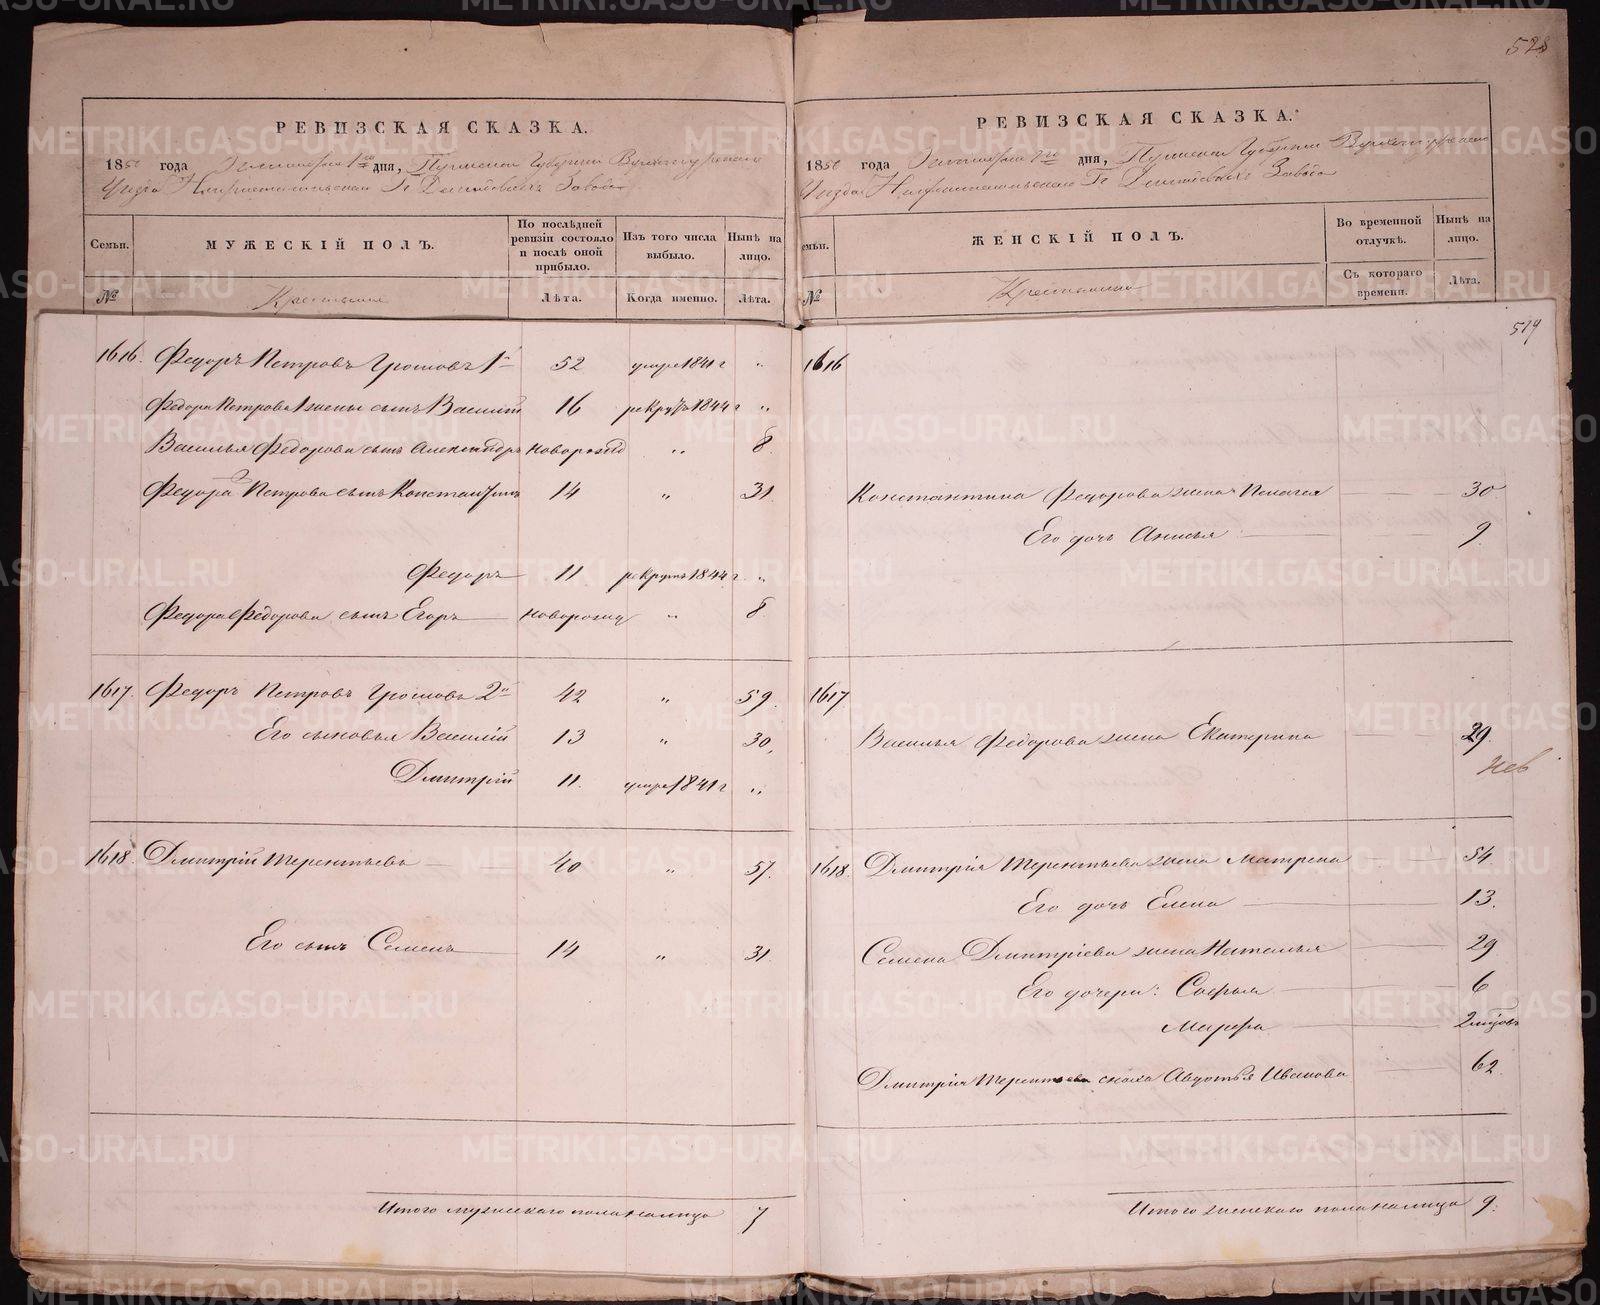 528
РЕВИЗСКАЯ СКАЗКА.
1850 года дня, Пермской Губернии Верхотурскаго
Уезда Нижнетагильскаго Гг Демидовыхъ Завода
Семьи.
МУЖЕСКІЙ ПОЛЪ.
По послѣдней ревизіи состояло и послѣ оной прибыло.
Изъ того числа выбыло.
Нынѣ на лицо.
№
Крестьяне
Лѣта.
Когда именно.
Лѣта.
1616. Федоръ Петровъ Громовъ 1й 52 умре 1841 г "
Федора Петрова 1 жены сынъ Василій 16 рекрутъ 1844 г "
Василья Федорова сынъ Александръ новорожд " 8
Федора Петрова сынъ Константинъ 14 " 31
Федоръ 11 рекрутъ 1844 г. "
Федора Федорова сынъ Егоръ новорожд " 8
1617. Федоръ Петровъ Громовъ 2й 42 " 59.
Его сыновья Василій 13 " 30.
Дмитрій 11. умре 1841 г "
1618. Дмитрій Терентьевъ 40 " 57.
Его сынъ Семенъ 14 " 31
Итого мужескаго пола налицо 7
РЕВИЗСКАЯ СКАЗКА.
1850 года дня, Пермской Губерніи Верхотурскаго
Уезда Нижнетагильскаго Гг Демидовыхъ Завода
емьи.
ЖЕНСКІЙ ПОЛЪ.
Во временной отлучкѣ.
Нынѣ на лицо.
№
Крестьянки
Съ котораго времени.
Лѣта.
519
1616
Константина Федорова жена Пелагея 30
Его дочь Анисья 9.
1617
Василья Федорова жена Екатерина 29.
1618. Дмитрія Терентьева жена Матрена 54
Его дочь Елена 13.
Семена Дмитріева жена Наталья 29
Его дочери: Софья 6
Марфа 2 мѣсяц
Дмитрія Терентьева сноха Авдотья Иванова 62
Итого женскаго пола налицо 9.
METRIKI.GASO-URAL.RU